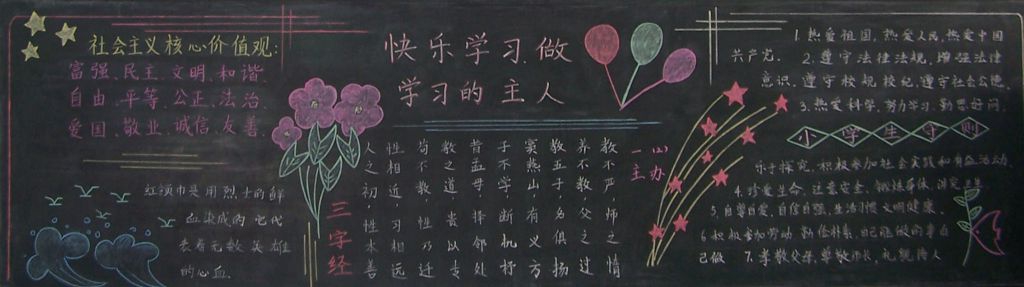 社会主义核心价值观:
富强、民主、文明、和谐、
自由、平等、公正、法治、
爱国、敬业、诚信、友善、
红领巾是用烈士的鲜
血染成的 它代
表着无数英雄
的心血.
快乐学习,做
学习的主人
三字经
人之初,性本善
性相近,习相远
苟不教,性乃迁
教之道,贵以专
昔孟母,择邻处
子不学,断机杼
窦燕山,有义方
教五子,名俱扬
养不教,父之过
教不严,师之情
一(2)
主办
1.热爱祖国,热爱人民,热爱中国
共产党. 2.遵守法律法规,增强法律
意识.遵守校规校纪,遵守社会公德.
3.热爱科学,努力学习,勤思好问,
小学生守则
乐于探究,积极参加社会实践和有益活动.
4.珍爱生命,注意安全,锻炼身体,讲究卫生
5.自尊自爱,自信自强,生活习惯文明健康.
6.积极参加劳动,勤俭朴素,自己能做的事自
己做 7.孝敬父母,尊敬师长,礼貌待人